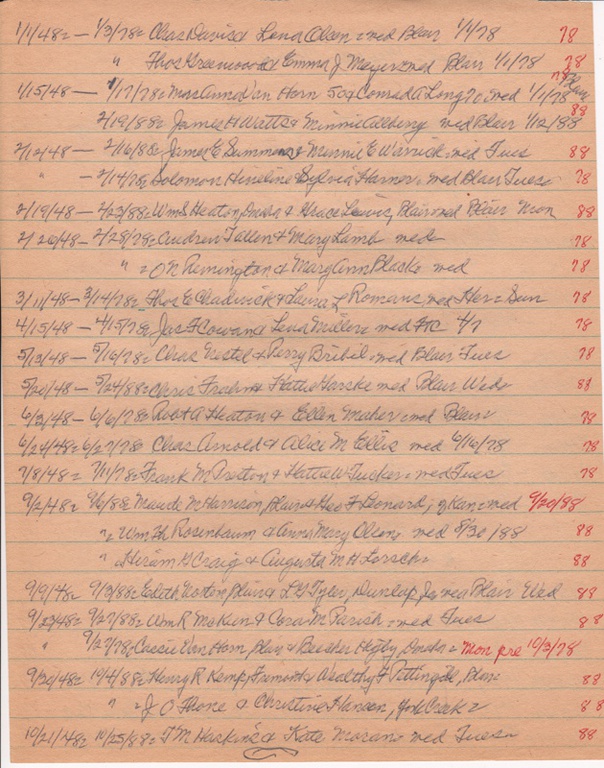 1/1/48 = 1/3/78 = Chas Davis & Lena Olsen = med Blair 1/1/78 78
" Thos Greenwood & Emma J Meyer = med Blair 1/1/78 78
1/15/48 — 1/17/78 = Mrs Anna Van Horn 50 & Conrad A Long 70, med 1/1/78 Blair 78
2/19/88 = James H Watts & Minnie med Blair 1/12/88 88
2/12/48 — 2/16/88 = James E Summers & Minnie E Warrick = med Tues 88
" — 2/14/78 = Solomon Hineline & Sylvia Harner = med Blair Tues 78
2/19/48 — 2/23/88 = Wm S Heaton, Omaha & Grace Lewis, Blair med Blair Mon 88
2/26/48 — 2/28/78 = Andrew Tallen & Mary Lamb med = 78
" = O N Remington & Mary Ann Blaske med 78
3/11/48 — 3/14/78 = Thos E Chadwick & Laura L Romans, med Her = Sun 78
4/15/48 — 4/15/78 = Jas F Cowan & Lena Miller = med FtC 4/7 78
5/13/48 — 5/16/78 = Chas Nestel & Perry Bribil = med Blair Tues 78
5/20/48 — 5/24/88 = Chris Frahm & Hattie Harske med Blair Wed = 88
6/2/48 — 6/6/78 = Robt A Heaton & Ellen Maher = med Blair 78
6/24/48 = 6/27/78 Chas Arnold & Alice M Ellis med 6/16/78 78
7/8/48 = 7/11/78 = Frank M Preston & Hattie W Tucker = med Tues 78
9/2/48 = 9/6/88 Maude M Harrison, Blair & Geo F Leonard, Kan = med 9/20/88
" = Wm H Rosenbaum & Anna Mary Olson = med 8/30/88 88
" = Hiram G Craig & Augusta M H Lorsch = 88
9/9/48 = 9/13/88 = Edith Norton, Blair & L G Tyler, Dunlap, Ia, med Blair Wed 88
9/23/48 = 9/27/88 = Wm R McKeen & Cora M Parish = med Tues 88
" 9/27/78 = Cassie Van Horn, Blair & Beecher Higby, Omaha = Mon pre 10/3/78
9/30/48 = 10/4/88 = Henry R Kemp, Fremont & Wealthy F Pettingill, Blair 88
" = J O Thone & Christine Hansen, York Creek = 88
10/21/48 = 10/25/88 = T M Haskins & Kate Moran = med Tues = 88